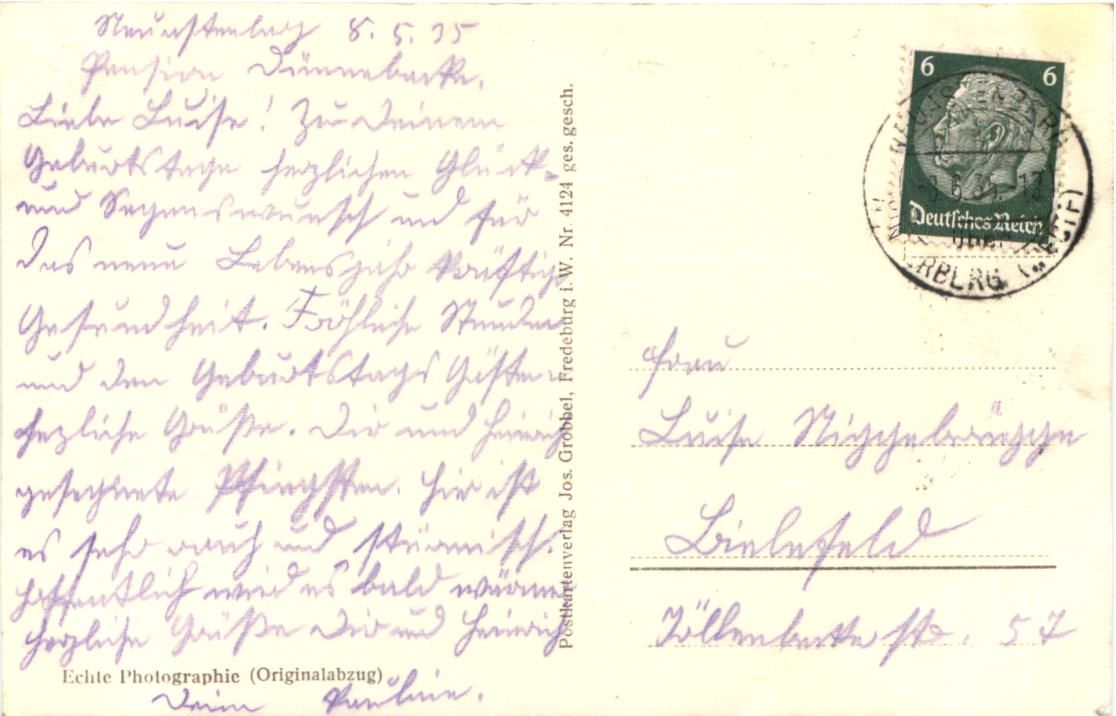 Neuastenberg 8. 6. 35
Pension Dünnebacke.
Liebe Luise! Zu Deinem
Geburtstage herzlichen Glück-
und Segenswunsch und für
das neue Lebensjahr kräftige
Gesundheit. Fröhliche Stunden
und den Geburtstags Gästen
herzliche Grüße. Dir und Heinrich
gesegnete Pfingsten. Hier ist
es sehr rauh und stürmisch.
Hoffentlich wird es bald wärmer
herzliche Grüße Dir und Heinrich
Echte Photographie (Originalabzug)
Deine Pauline.
Postkartenverlag Jos. Grobbel, Fredeburg i. W. Nr. 4124 ges. gesch.
6 6
Deutsches Reich
NEUASTENBERG
6.35-12
über
WINTERBERG (WESTF)
Frau
Luise Niggebrügge
Bielefeld
Jöllenbeckerstr. 57